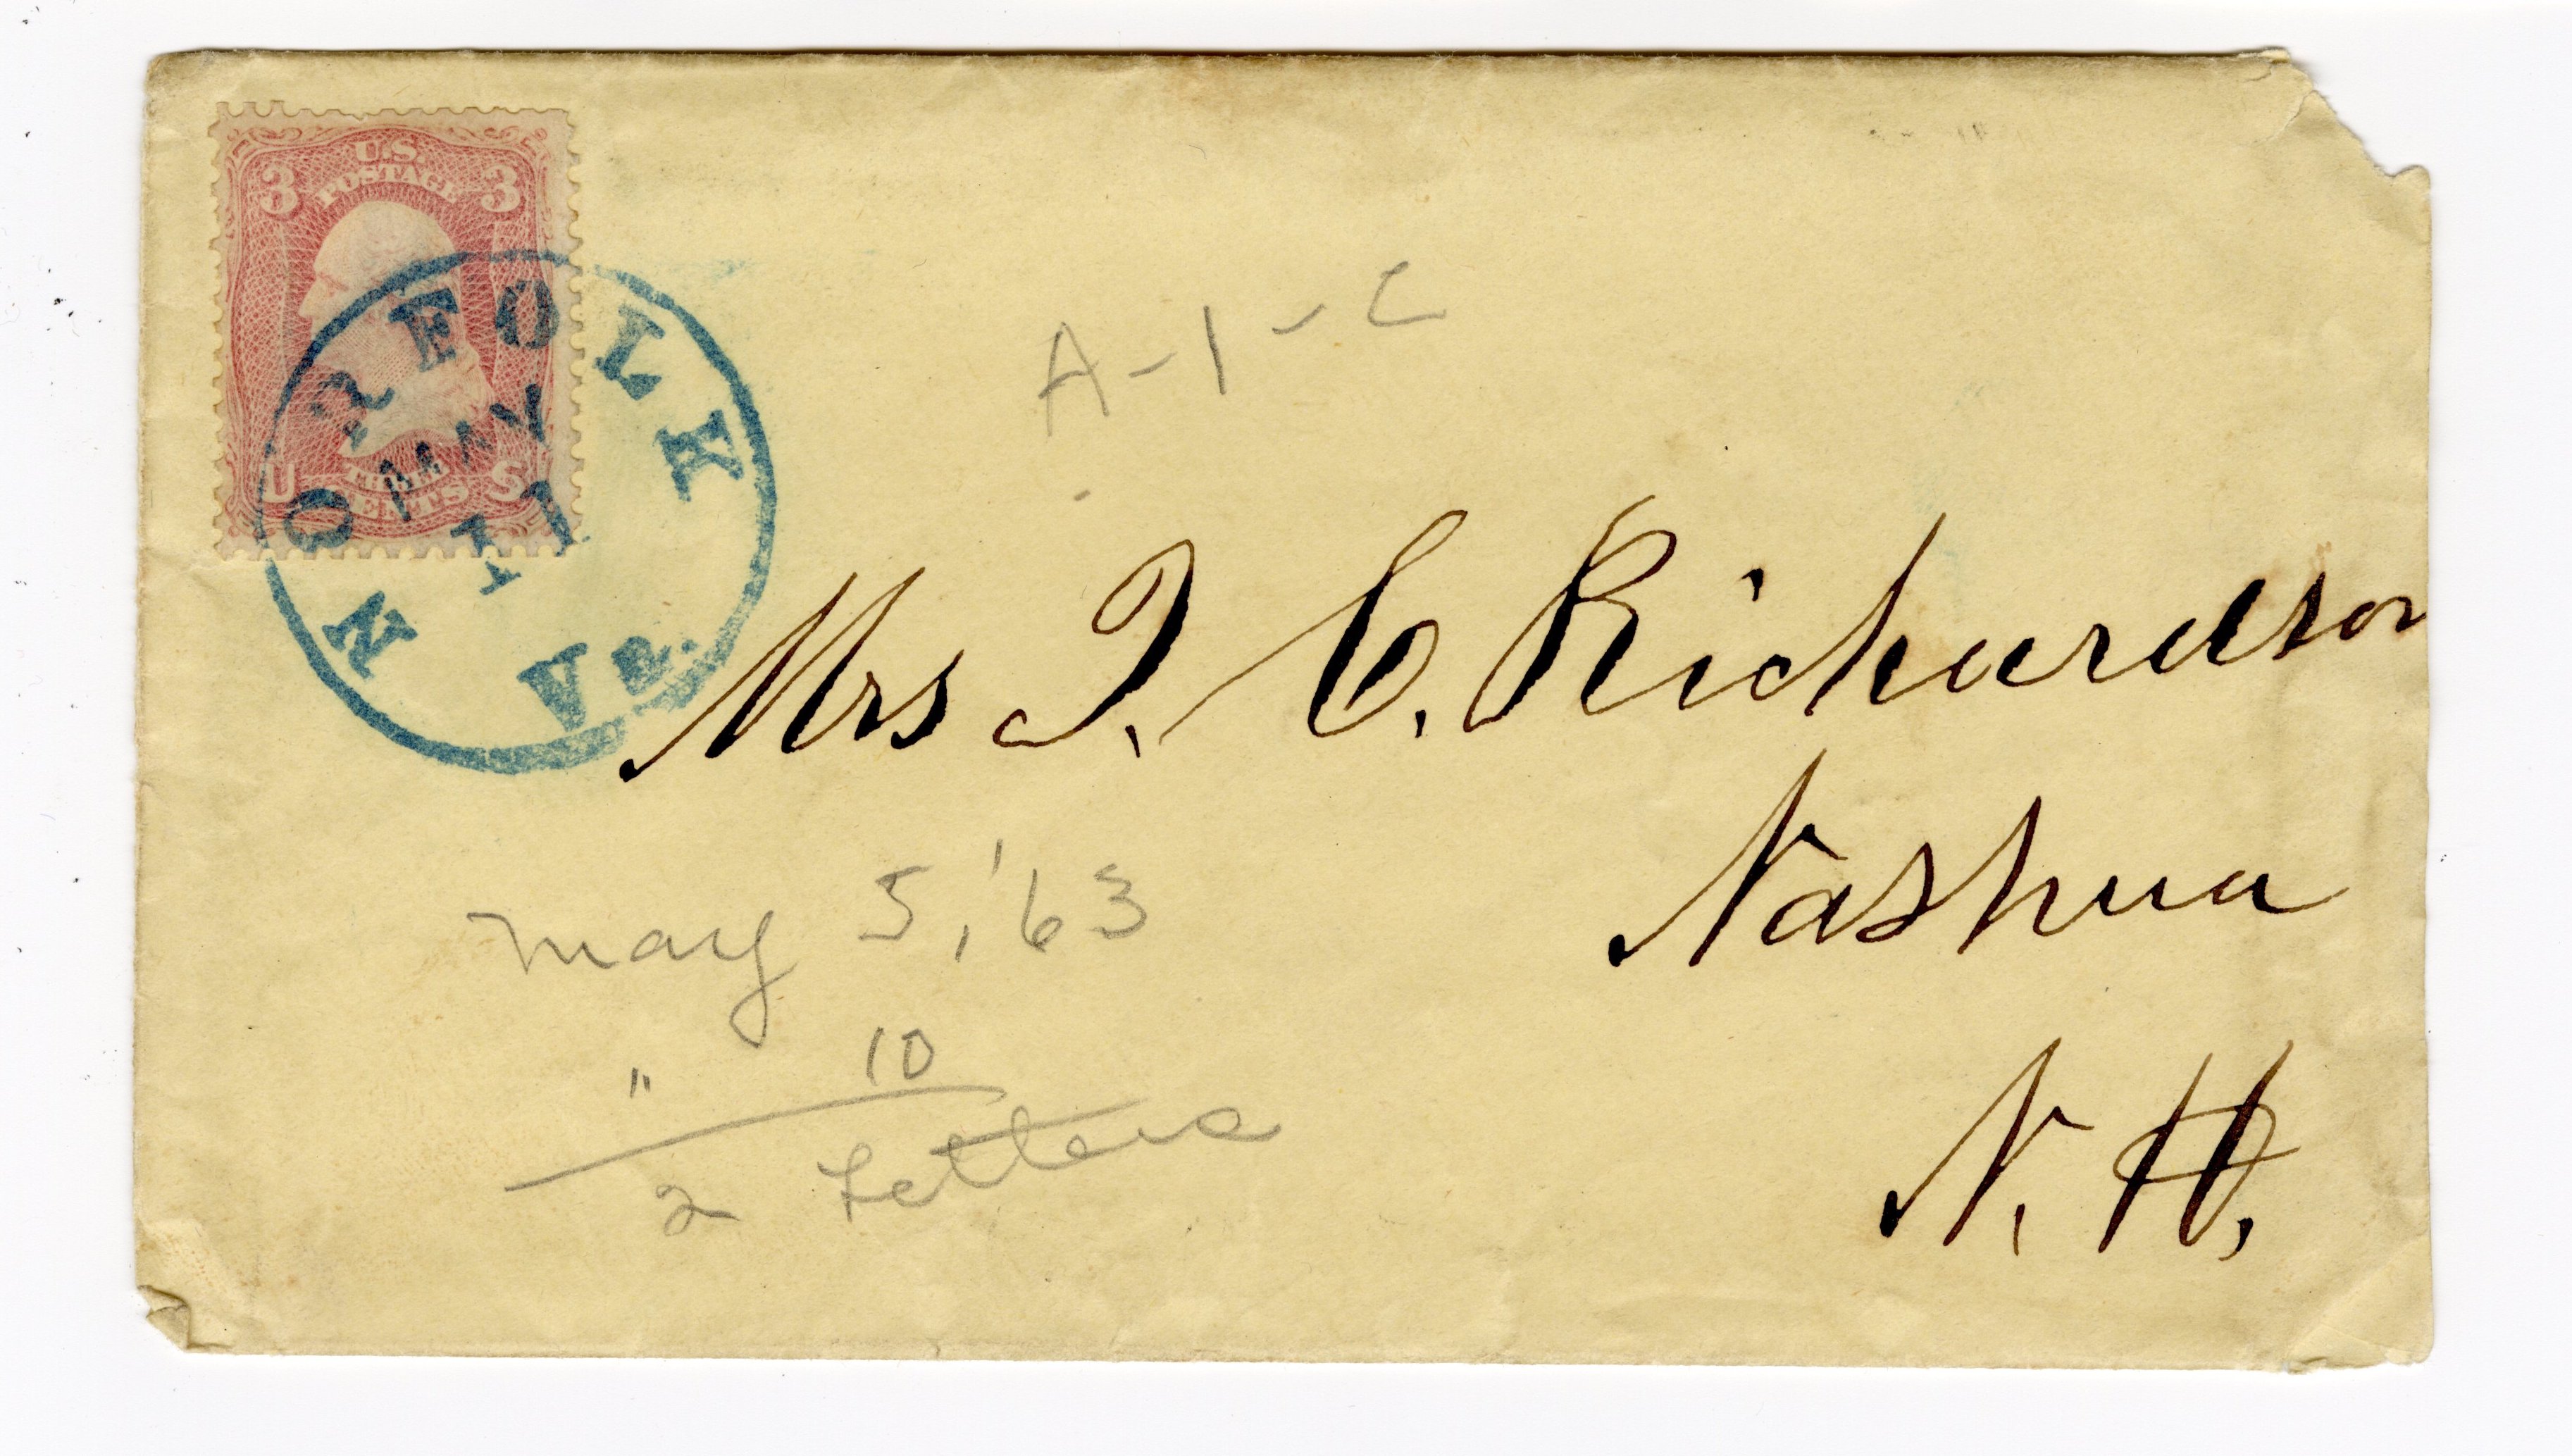 U.S.
POSTAGE
3 3
THREE
CENTS
U S
NORFOLK
MAY
11
Va.
A-1-C
Mrs J. C. Richardson
Nashua
N. H.
May 5, '63
" 10
2 Letters